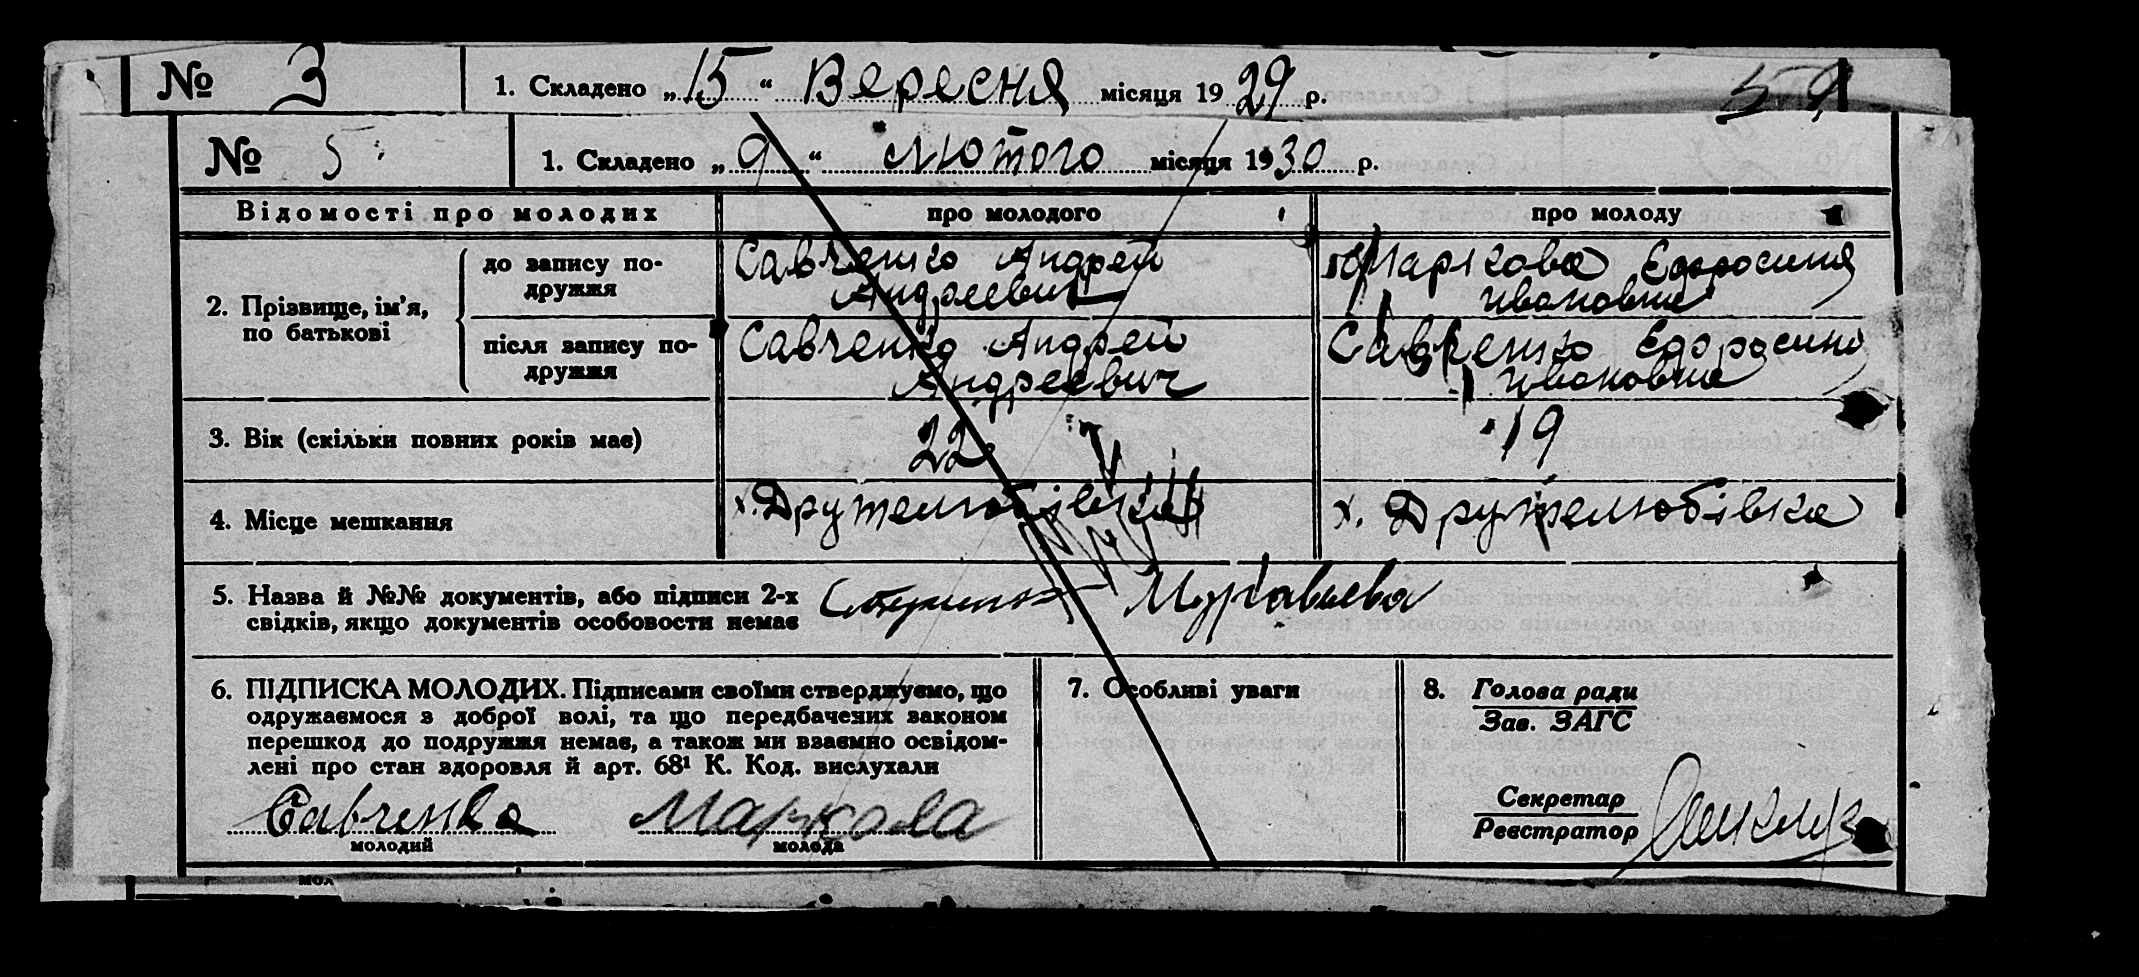 № 3 1. Складено „15“ Вересня місяця 1929 р. 59
№ 5 1. Складено „9“ лютого місяця 1930 р.
Відомості про молодих про молодого про молоду
2. Прізвище, ім'я, по батькові
до запису по-
дружжя
Савченко Андрей
Андреевич
Маркова Єфросиния
Ивановна
після запису по-
дружжя
Савченко Андрей
Андреевич
Савченко Єфросиния
Ивановна
3. Вік (скільки повних років має) 22 19
4. Місце мешкання х. Дружелюбівка х. Дружелюбівка
5. Назва й №№ документів, або підписи 2-х
свідків, якщо документів особовости немає
Муравьева
6. ПІДПИСКА МОЛОДИХ. Підписами своїми стверджуємо, що
одружаємося з доброї волі, та що передбачених законом
перешкод до подружжя немає, а також ми взаємно освідом-
лені про стан здоровля й арт. 68¹ К. Код. вислухали
Савченко Маркова
молодий молода
7. Особливі уваги
8. Голова ради
Зав. ЗАГС
Секретар
Реєстратор
мол